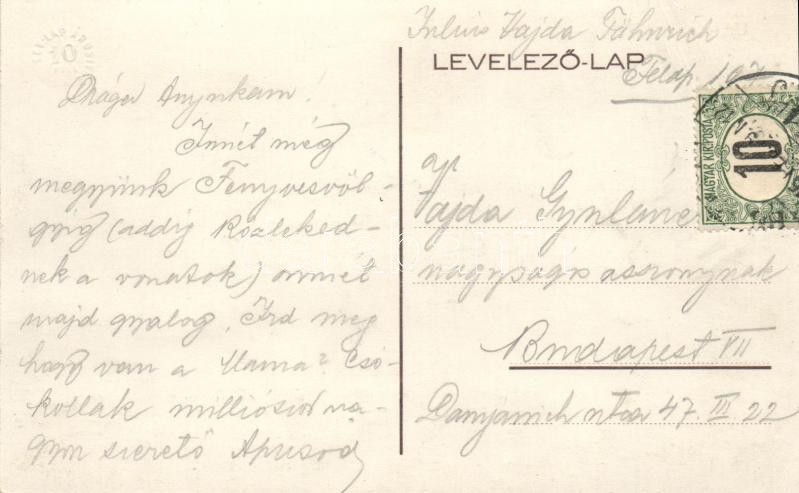 Drága Anyukám!
Innét még
megyünk Fenyvesvöl-
gyig (addig közleked-
nek a vonatok) onnét
majd gyalog. Írd meg
hogy van a Mama? Csó-
kollak milliószor na-
gyon szerető Apusod
Julius Vajda Fähnrich
LEVELEZŐ-LAP
Feldp. 107
MAGYAR KIR. POSTA
10
Vajda Gyuláné
nagyságos asszonynak
Budapest VII
Damjanich utca 47. III 22